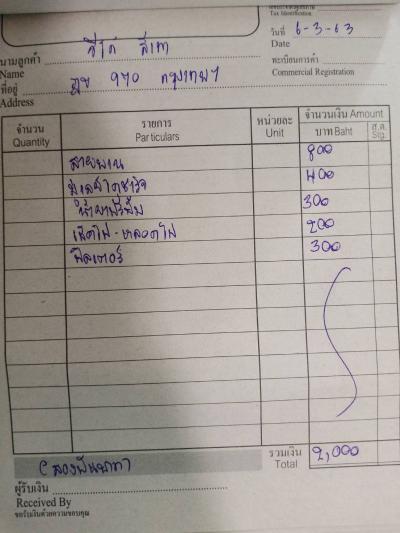 Tax Identification
วันที่ 6-3-63
Date
นามลูกค้า วีโก้ สีเทา
Name
ทะเบียนการค้า
Commercial Registration
ที่อยู่ 970 กรุงเทพฯ
Address
จำนวน รายการ หน่วยละ จำนวนเงิน Amount
Quantity Particulars Unit บาท Baht ส.ต. Stg.
สายพาน 800
400
300
200
ฟิลเตอร์ 300
รวมเงิน 2,000
Total
(สองพันบาท)
ผู้รับเงิน
Received By
ขอรับเงินด้วยความขอบคุณ